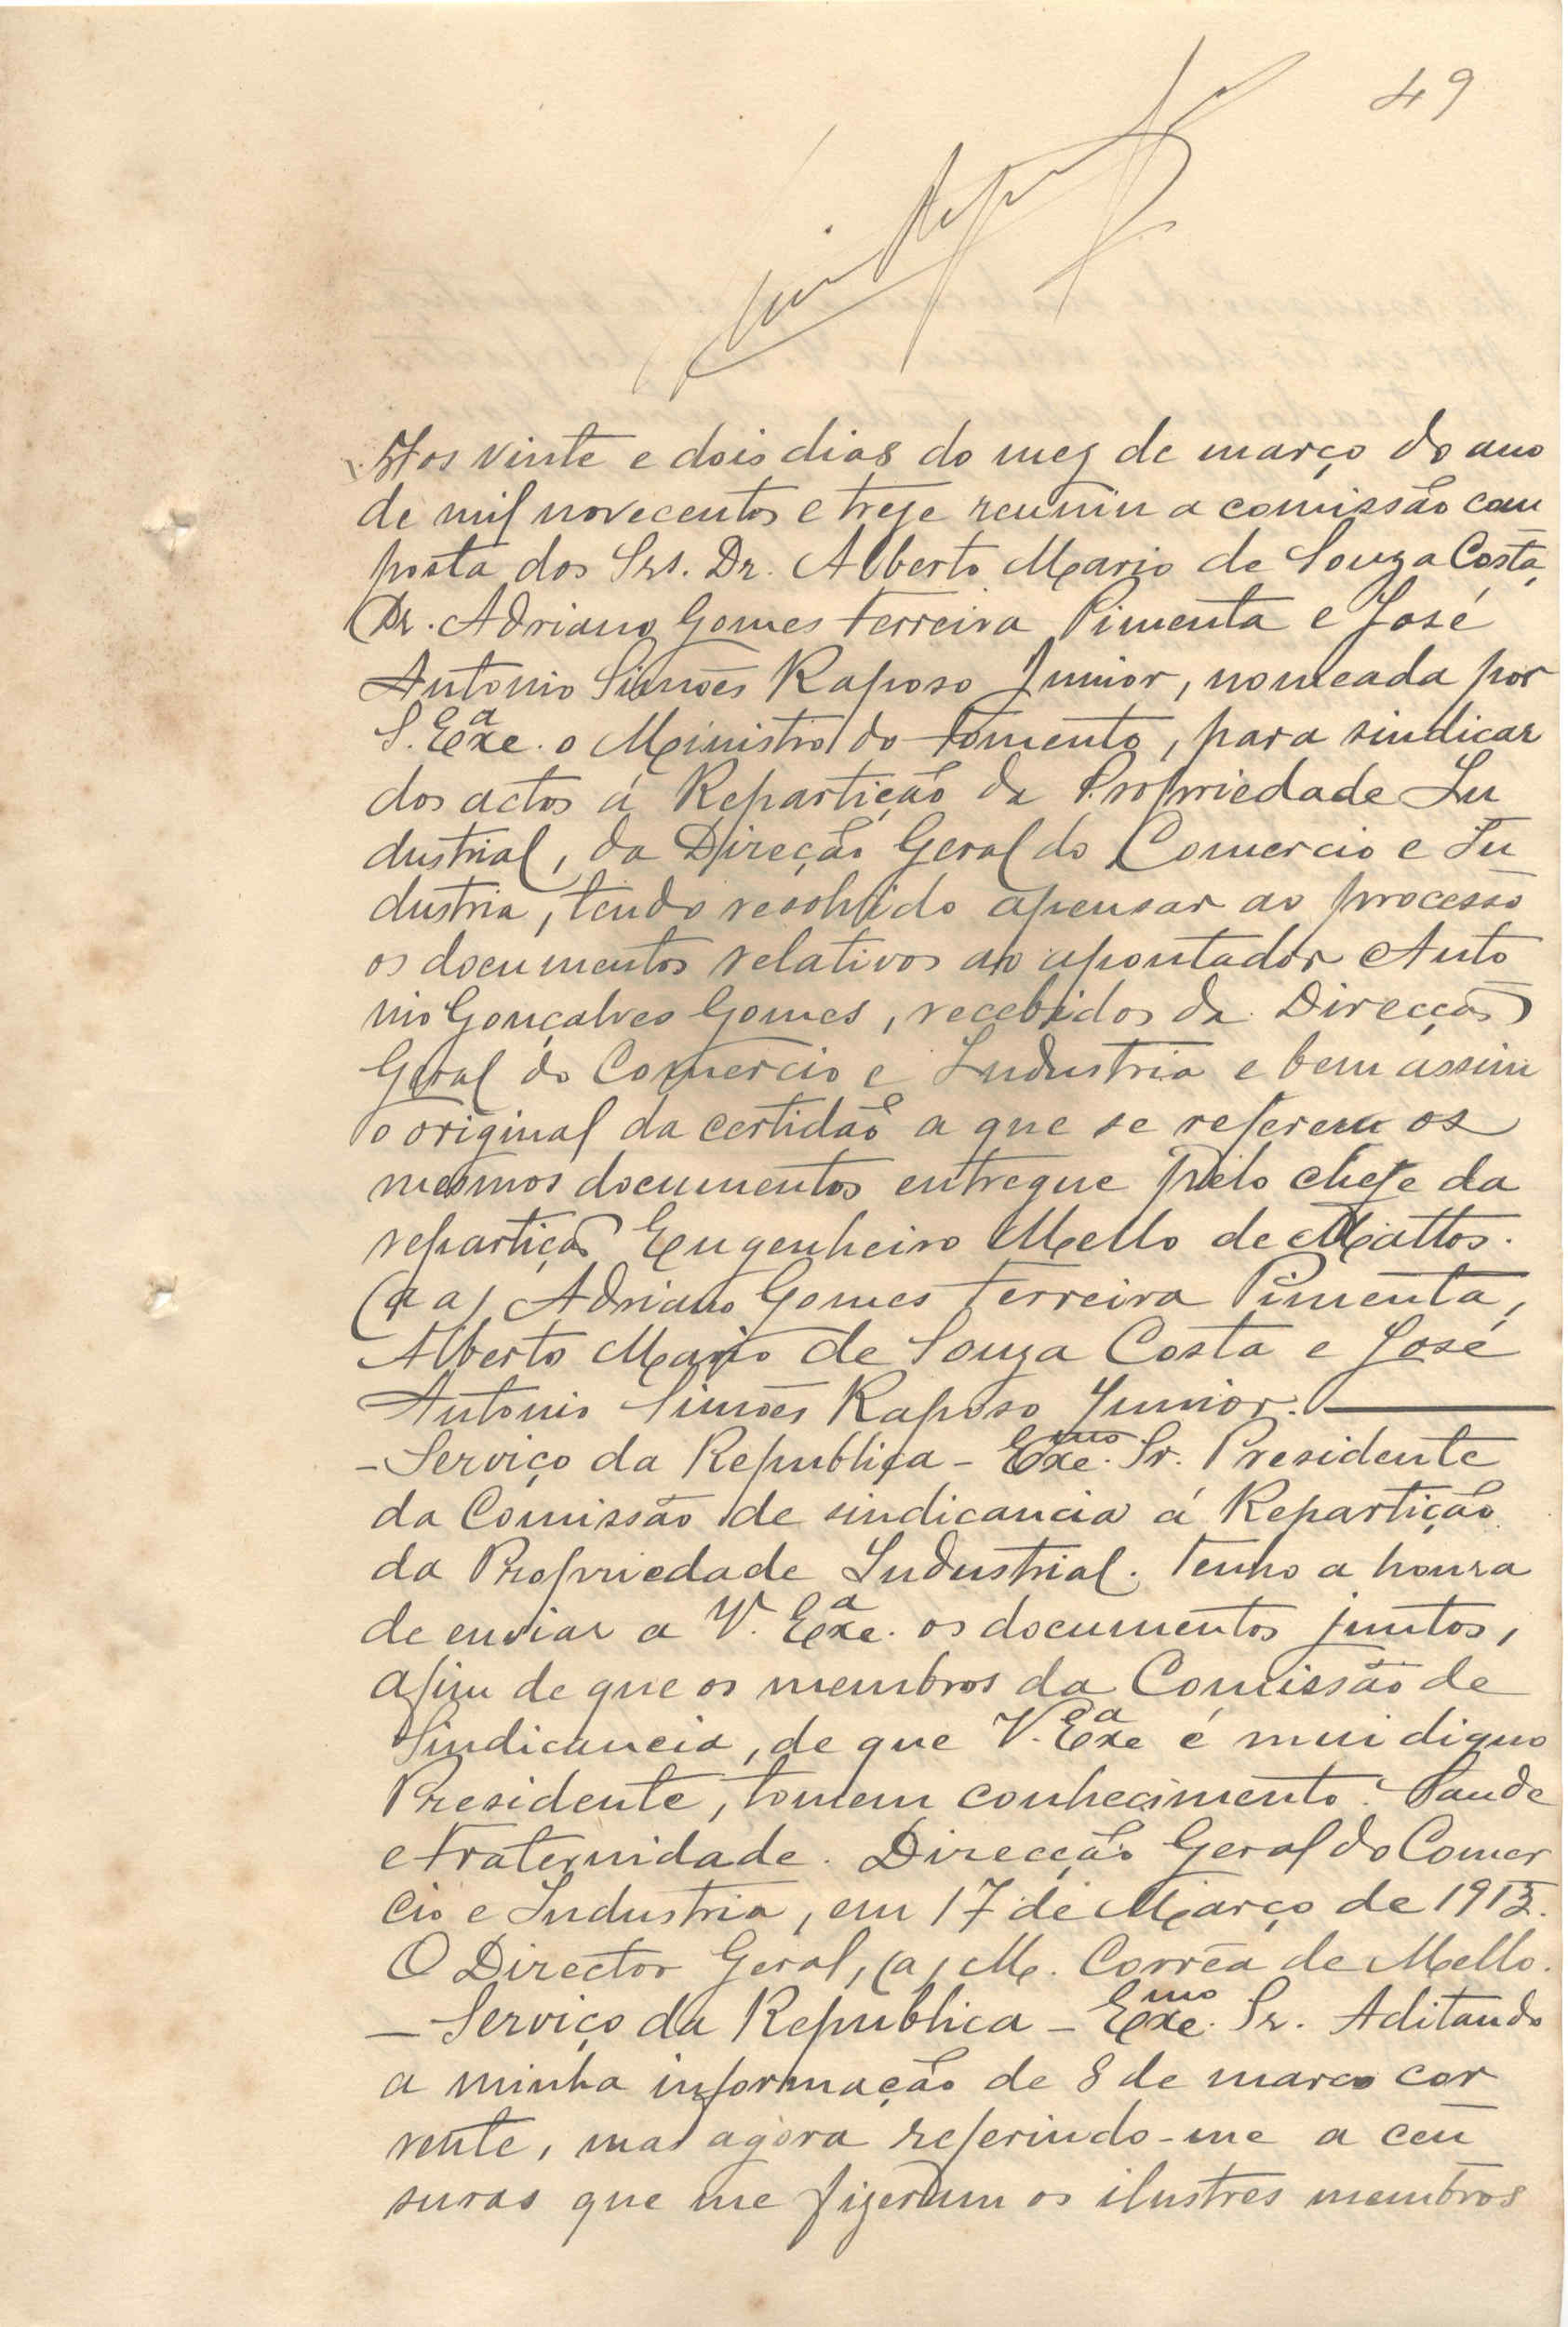 49
Aos vinte e dois dias do mez de março do ano
de mil novecentos e treze reuniu a comissão com
posta dos Srs. Dr. Alberto Mario de Souza Costa,
Dr. Adriano Gomes Ferreira Pimenta e José
Antonio Simões Raposo Junior, nomeada por
S. Exª. o Ministro do Fomento, para sindicar
dos actos á Repartição da Propriedade In
dustrial, da Direção Geral do Comercio e In
dustria, tendo resolvido apensar ao processo
os documentos relativos ao apontador Anto
nio Gonçalves Gomes, recebidos da Direcção
Geral do Comercio e Industria e bem assim
o original da certidão a que se referem os
mesmos documentos entregue pelo chefe da
repartição Engenheiro Mello de Mattos.
(aa) Adriano Gomes Ferreira Pimenta,
Alberto Mario de Souza Costa e José
Antonio Simões Raposo Junior.
- Serviço da Republica - Exmo. Sr. Presidente
da Comissão de sindicancia á Repartição
da Propriedade Industrial. Tenho a honra
de enviar a V. Exª. os documentos juntos,
afim de que os membros da Comissão de
Sindicancia, de que V. Exª é mui digno
Presidente, tomem conhecimento. Saude
e Fraternidade. Direcção Geral do Comer
cio e Industria, em 17 de Março de 1913.
O Director Geral, (a) M. Corrêa de Mello.
- Serviço da Republica - Exmo. Sr. Aditando
a minha informação de 8 de março cor
rente, mas agora referindo-me a cen
suras que me fizeram os ilustres membros